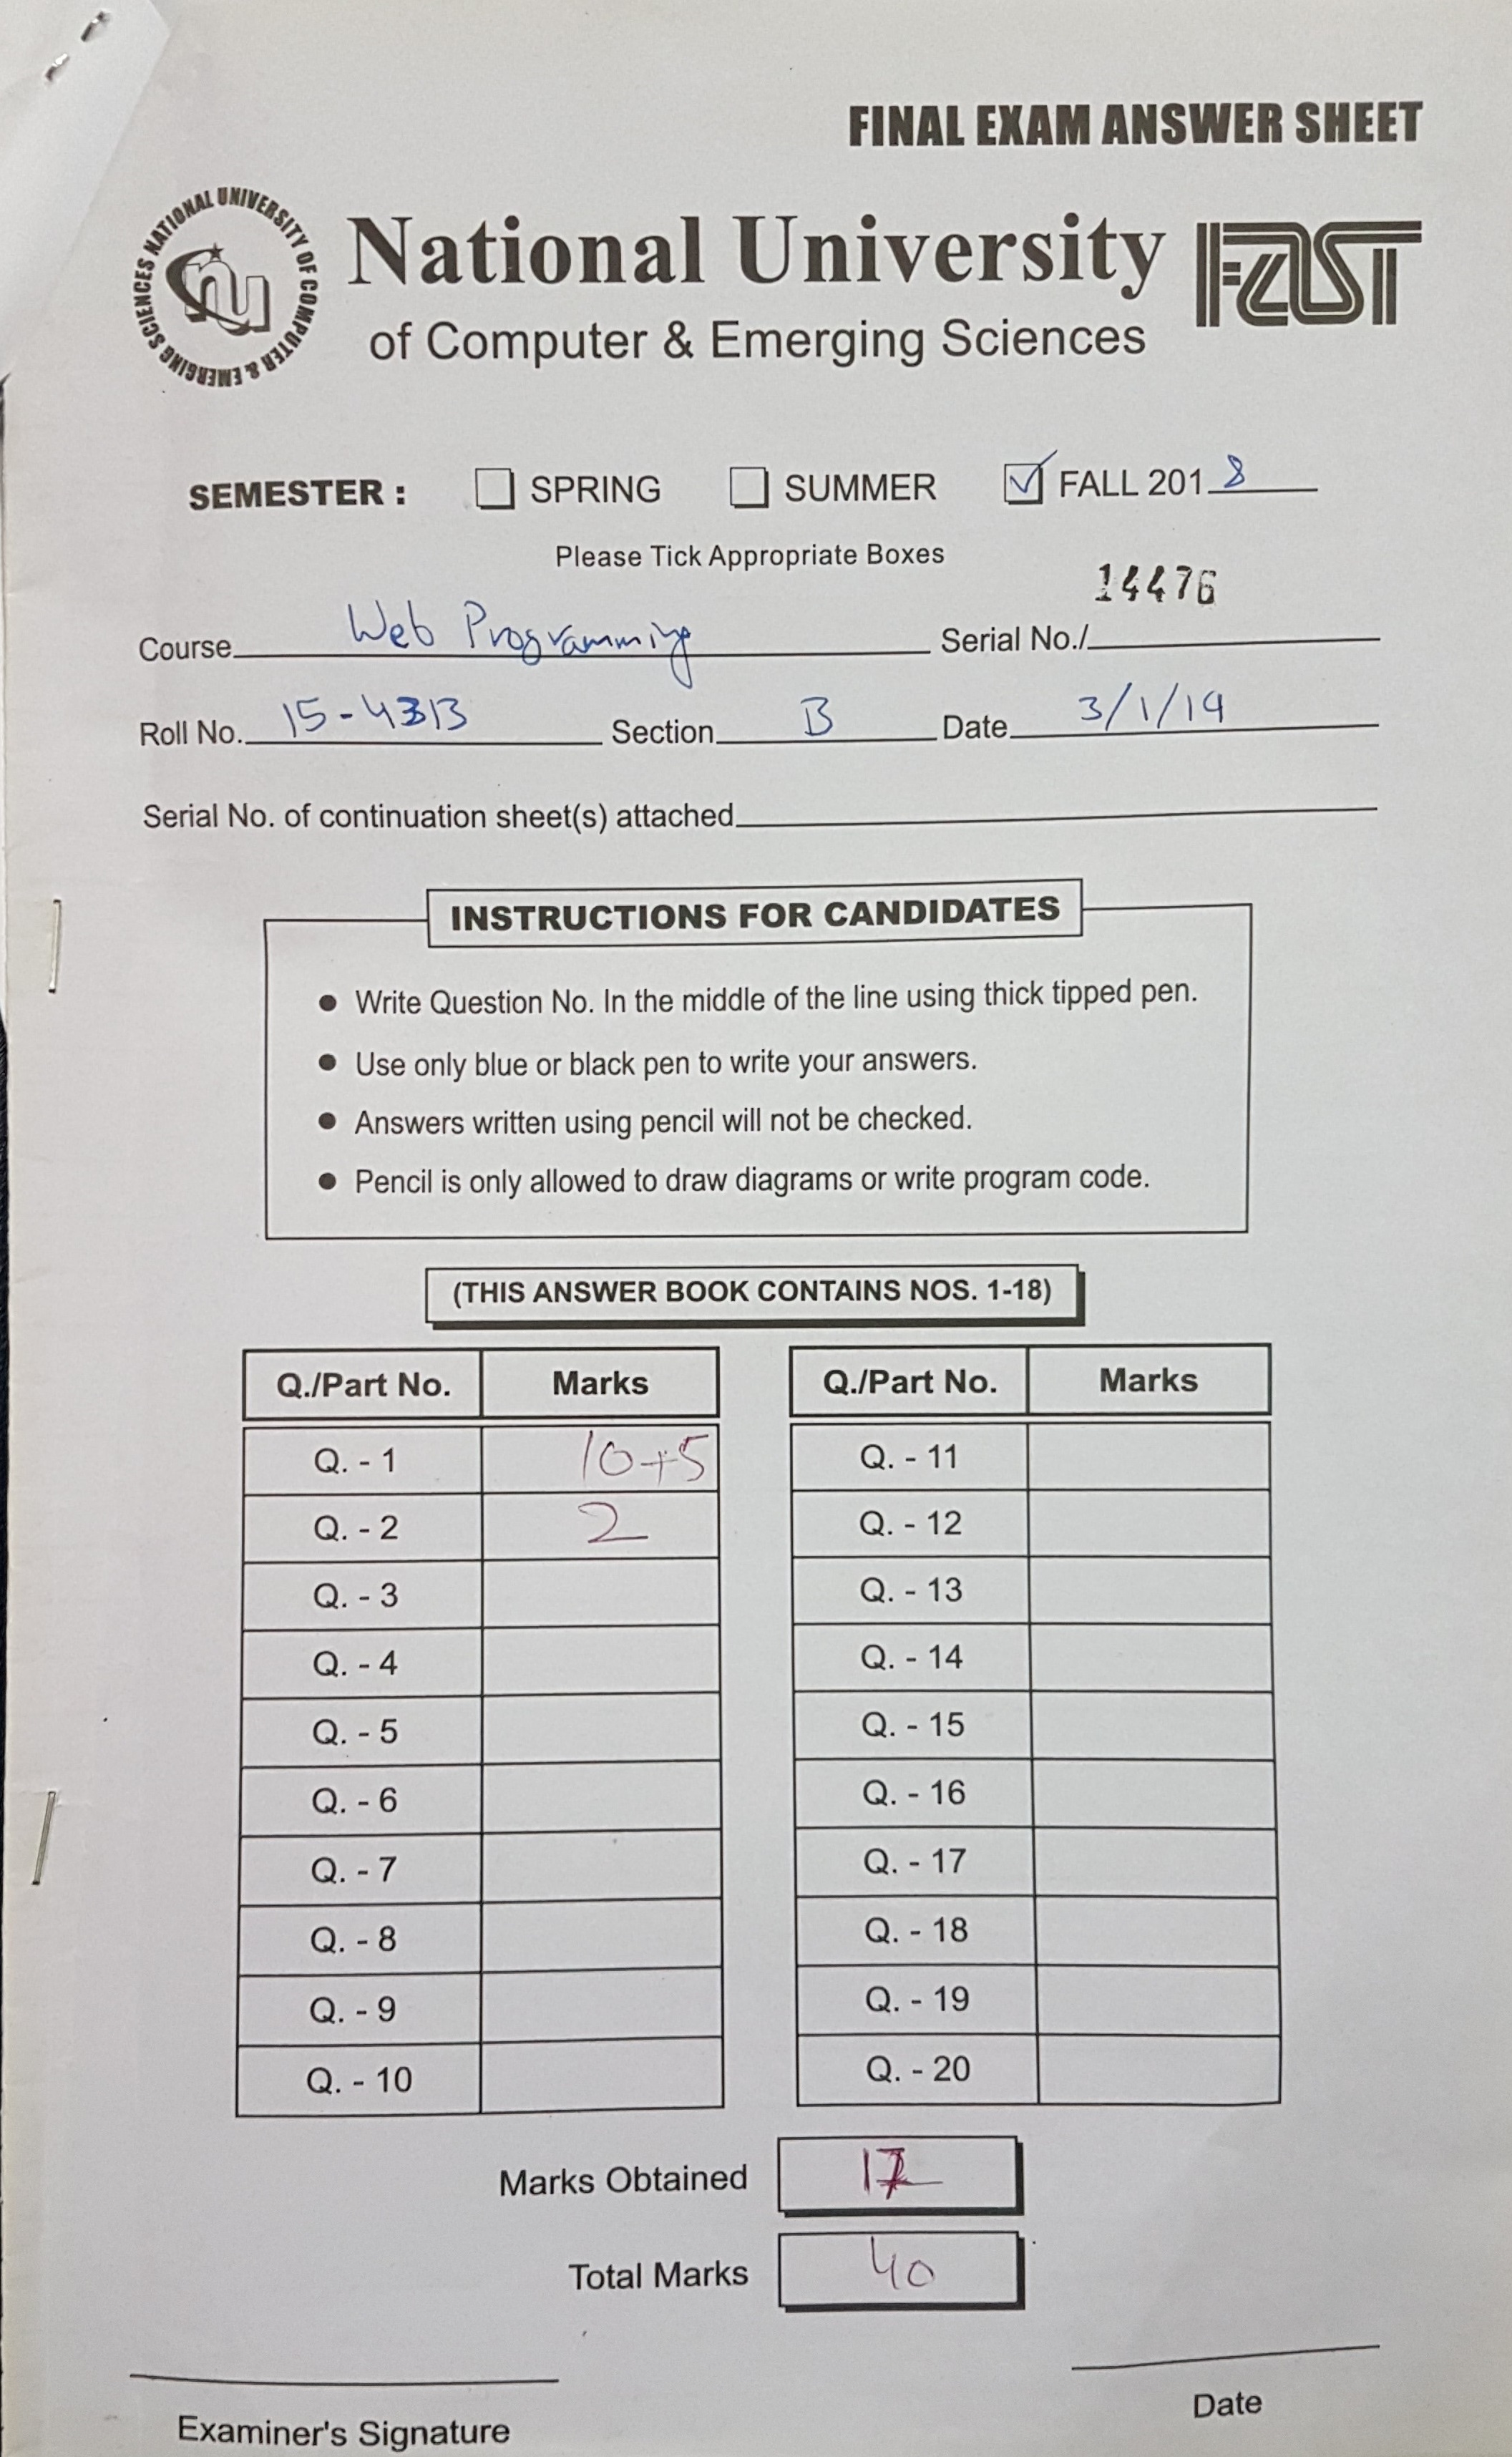 FINAL EXAM ANSWER SHEET
NATIONAL UNIVERSITY OF COMPUTER & EMERGING SCIENCES
nu
National University
FAST
of Computer & Emerging Sciences
SEMESTER : SPRING SUMMER FALL 2018
Please Tick Appropriate Boxes
14476
Course Web Programming Serial No./
Roll No. 15-4313 Section B Date 3/1/19
Serial No. of continuation sheet(s) attached
INSTRUCTIONS FOR CANDIDATES
● Write Question No. In the middle of the line using thick tipped pen.
● Use only blue or black pen to write your answers.
● Answers written using pencil will not be checked.
● Pencil is only allowed to draw diagrams or write program code.
(THIS ANSWER BOOK CONTAINS NOS. 1-18)
Q./Part No. Marks Q./Part No. Marks
Q. - 1 10+5 Q. - 11
Q. - 2 2 Q. - 12
Q. - 3 Q. - 13
Q. - 4 Q. - 14
Q. - 5 Q. - 15
Q. - 6 Q. - 16
Q. - 7 Q. - 17
Q. - 8 Q. - 18
Q. - 9 Q. - 19
Q. - 10 Q. - 20
Marks Obtained 17
Total Marks 40
Examiner's Signature Date